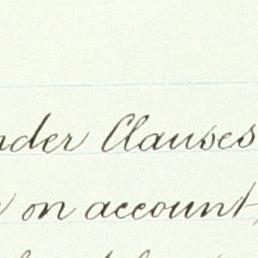 nder Clauses
on account,